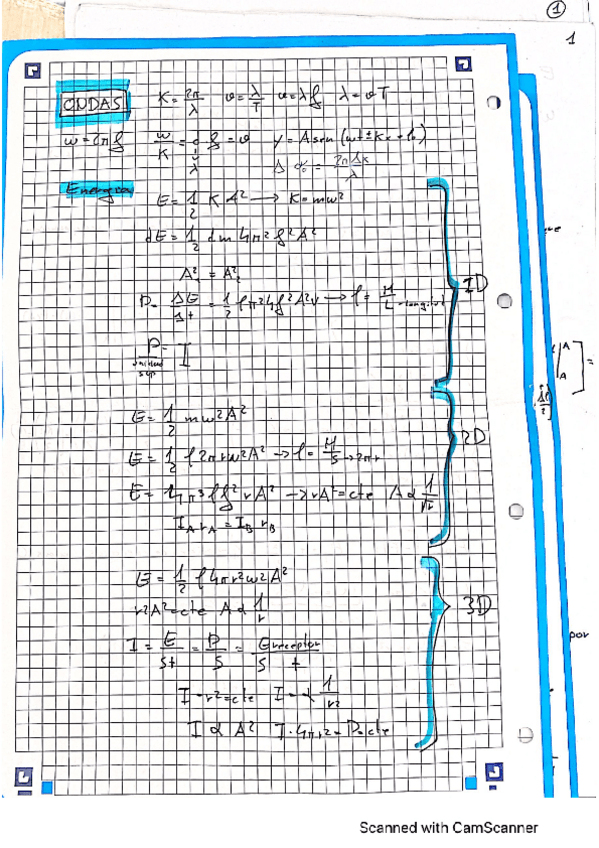 1
1
ONDAS K = 2π/λ v = λ/T v = λf λ = vT
w = 2πf w/K = λ·f = v y = A sen (wt ± Kx + φ₀)
Δφ₀ = 2πΔx/λ
Energía E = 1/2 K A² → K = mw²
dE = 1/2 dm 4π² f² A²
A₁² = A₂²
P = ΔE/Δt = 1/2 ρ π² 4 f² A² v → ρ = M/L → longitud
1D
P/unidad sup = I
E = 1/2 mw²A²
E = 1/2 ρ 2πr w² A² → ρ = M/S → 2πr
2D
E = 4π³ ρ f² r A² → rA² = cte A α 1/√r
I_A r_A = I_B r_B
E = 1/2 ρ 4πr² w² A²
r²A² = cte A α 1/r
3D
I = E/St = P/S = E receptor/S t
I · r² = cte I = α 1/r²
I α A² I · 4πr² = P = cte
por
Scanned with CamScanner